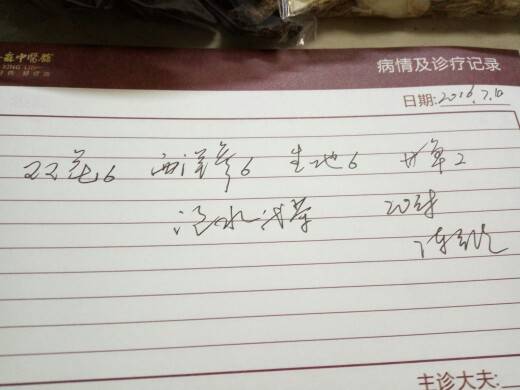 中医馆
病情及诊疗记录
日期:2016.7.10
双花6 西洋参6 生地6 甘草2
泡水代茶 20付
主诊大夫: